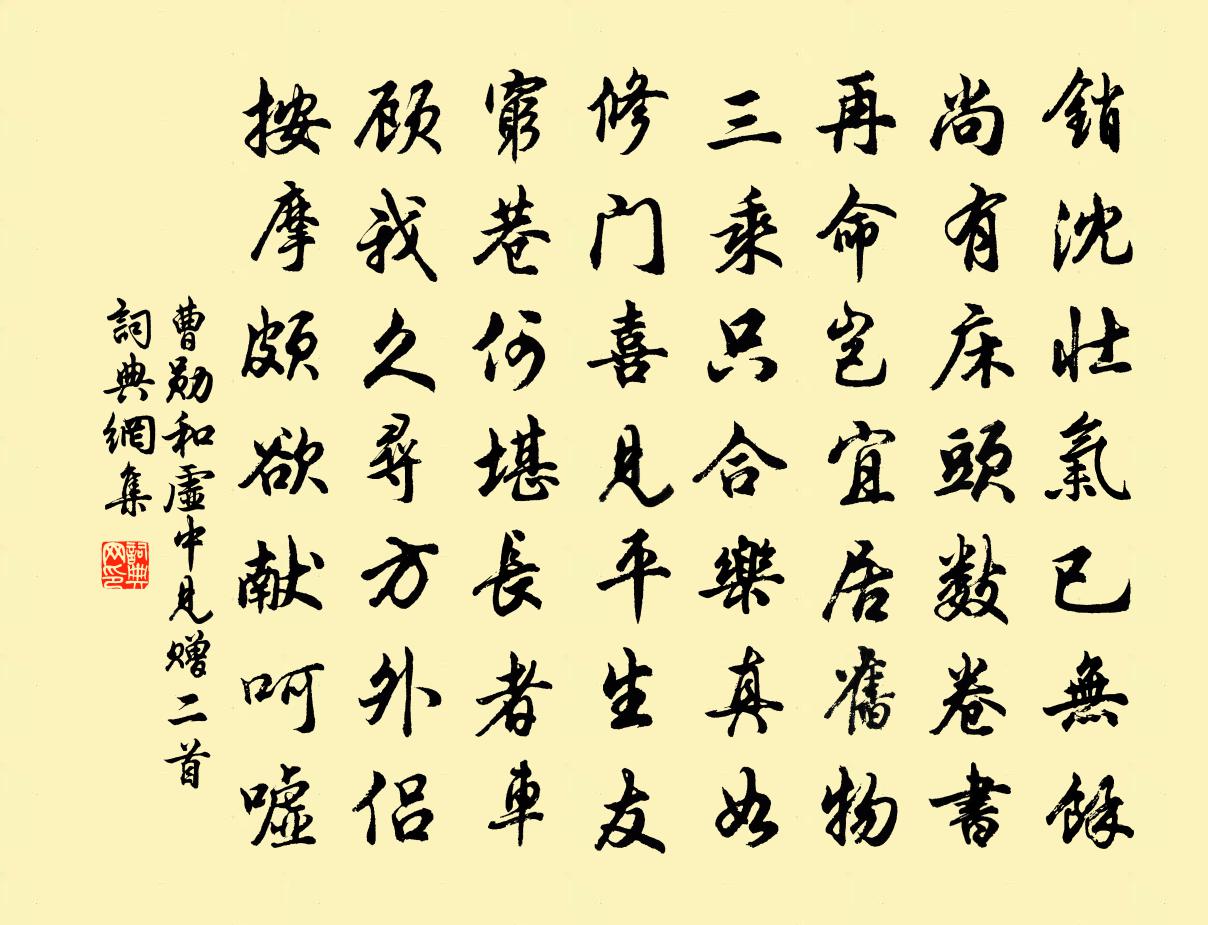 銷沈壯氣已無餘
尚有床頭數卷書
再命豈宜居舊物
三乘只合樂真如
修門喜見平生友
窮巷何堪長者車
顾我久尋方外侣
按摩頗欲献呵嘘
曹勛和虛中見贈二首
詞典網集
詞典网印